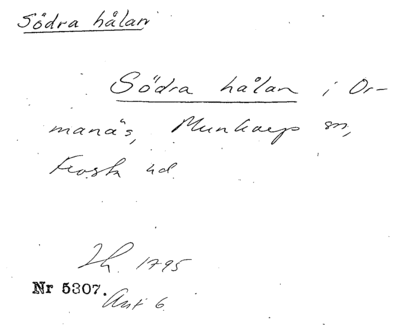 Södra hålan
Södra hålan i Or-
manäs, Munkarp sn,
Frosta hd.
Lh. 1795
Nr 5307.
Akt 6